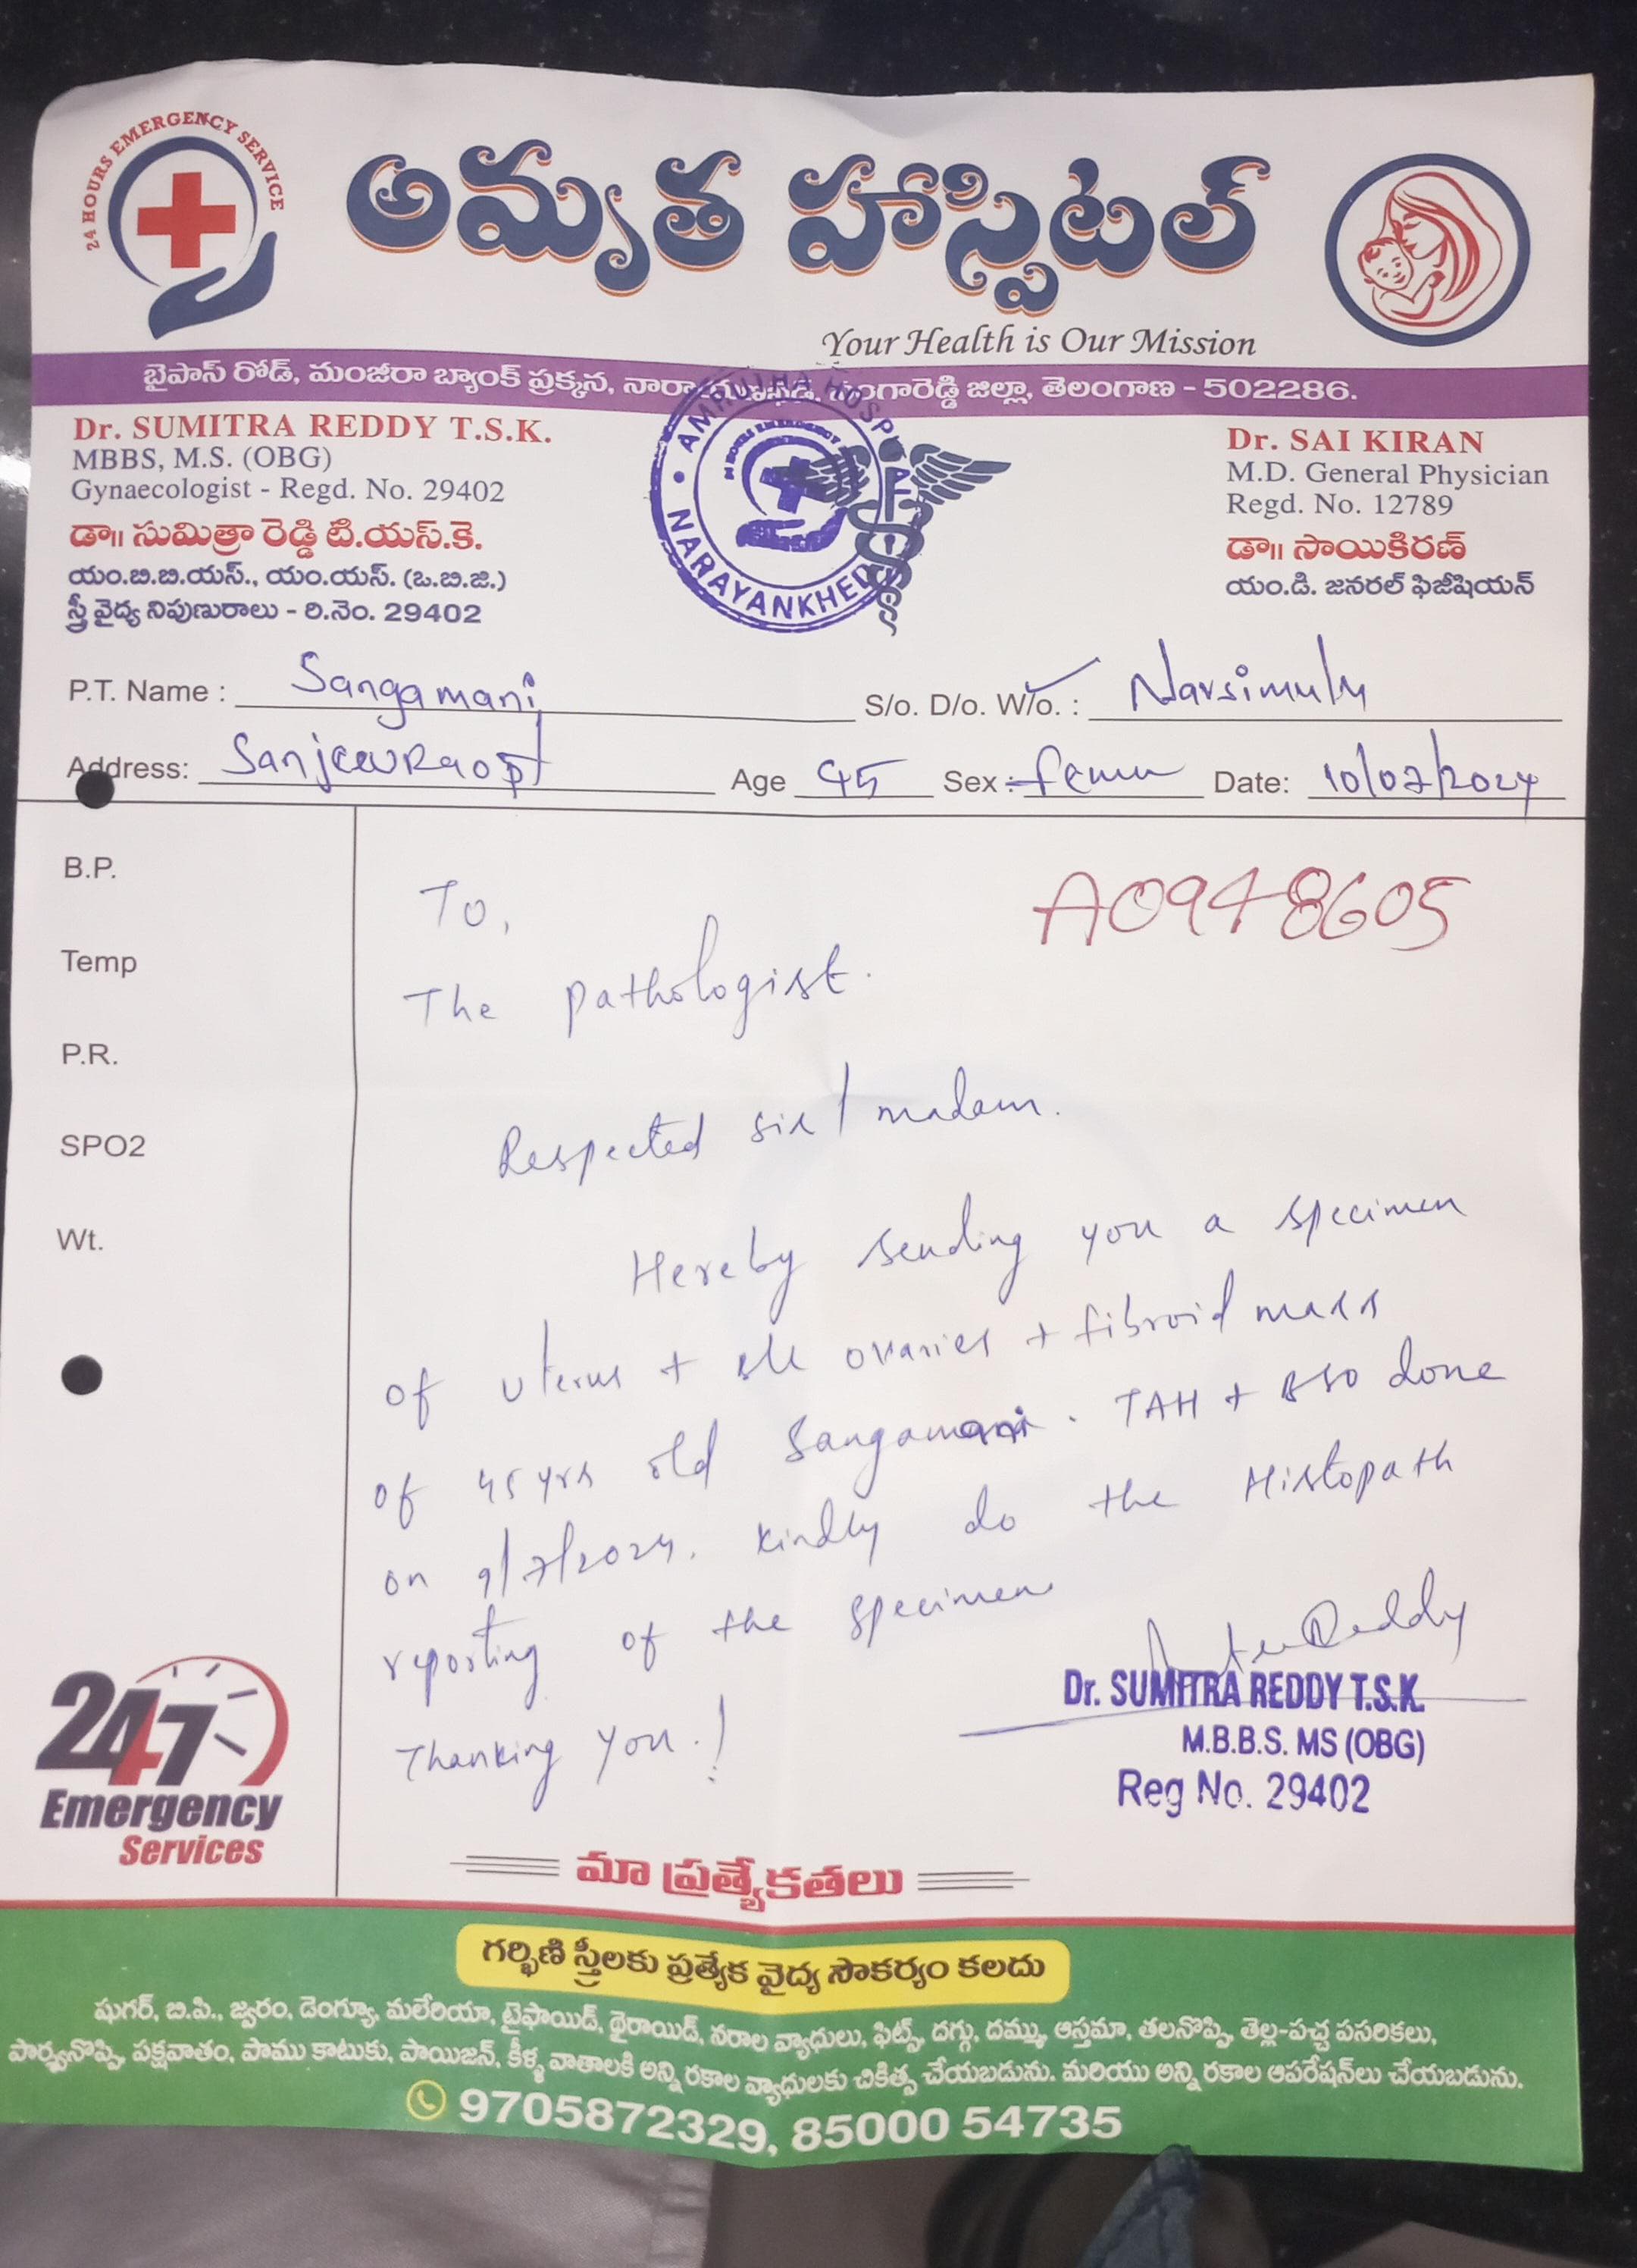 24 HOURS EMERGENCY SERVICE
అమృత హాస్పిటల్
Your Health is Our Mission
బైపాస్ రోడ్, మంజీరా బ్యాంక్ ప్రక్కన, సంగారెడ్డి జిల్లా, తెలంగాణ - 502286.
Dr. SUMITRA REDDY T.S.K.
MBBS, M.S. (OBG)
Gynaecologist - Regd. No. 29402
డా॥ సుమిత్రా రెడ్డి టి.యస్.కె.
యం.బి.బి.యస్., యం.యస్. (ఒ.బి.జి.)
స్త్రీ వైద్య నిపుణురాలు - రి.నెం. 29402
AMRUTHA HOSPITAL
NARAYANKHED
Dr. SAI KIRAN
M.D. General Physician
Regd. No. 12789
డా॥ సాయికిరణ్
యం.డి. జనరల్ ఫిజీషియన్
P.T. Name : Sangamani S/o. D/o. W/o. : Narsimulu
Address: Age 45 Sex : Date: 10/07/2024
B.P.
Temp
P.R.
SPO2
Wt.
A0948605
To,
The pathologist.
Respected sir/madam.
Hereby sending you a specimen
of uterus + b/l ovaries + fibroid mass
of 45 yrs old Sangamani. TAH + BSO done
on 9/7/2024. Kindly do the Histopath
reporting of the specimen
Thanking you.!
Dr. SUMITRA REDDY T.S.K.
M.B.B.S. MS (OBG)
Reg No. 29402
24/7
Emergency
Services
మా ప్రత్యేకతలు
గర్భిణి స్త్రీలకు ప్రత్యేక వైద్య సౌకర్యం కలదు
షుగర్, బి.పి., జ్వరం, డెంగ్యూ, మలేరియా, టైఫాయిడ్, థైరాయిడ్, నరాల వ్యాధులు, ఫిట్స్, దగ్గు, దమ్ము, ఆస్తమా, తలనొప్పి, తెల్ల-పచ్చ పసరికలు,
పార్శ్వనొప్పి, పక్షవాతం, పాము కాటుకు, పాయిజన్, కీళ్ళ వాతాలకి అన్ని రకాల వ్యాధులకు చికిత్స చేయబడును. మరియు అన్ని రకాల ఆపరేషన్‌లు చేయబడును.
9705872329, 85000 54735